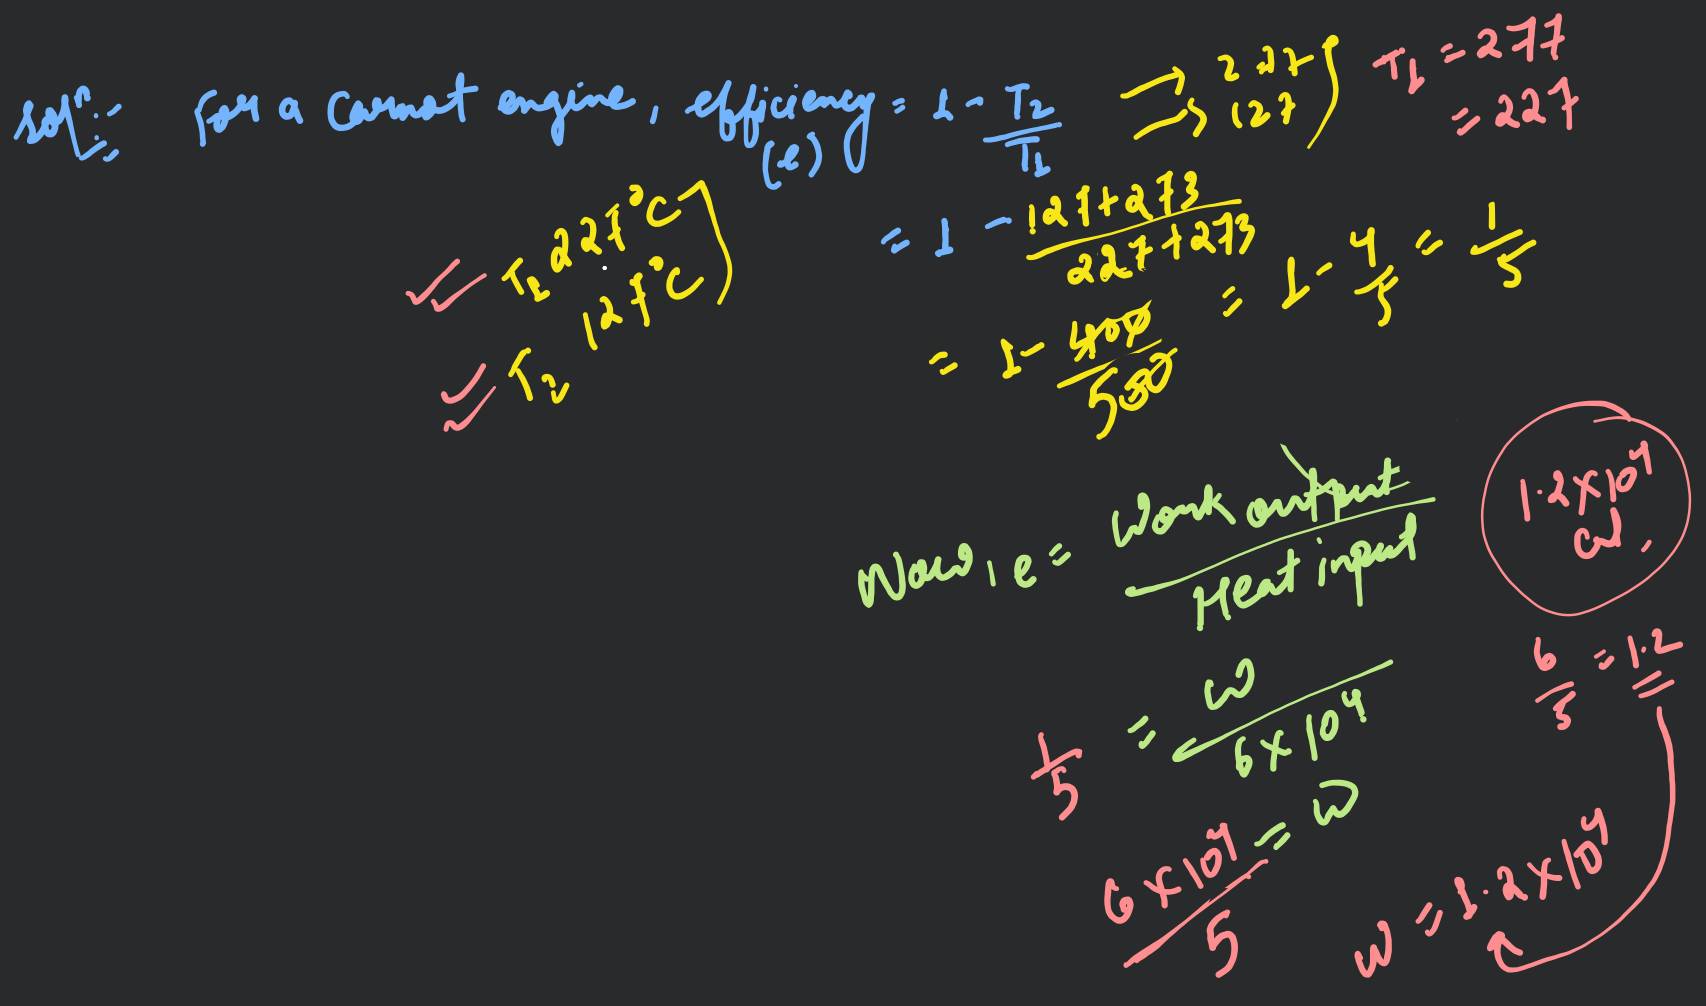 Solⁿ:- For a Carnot engine, efficiency = 1 - T₂/T₁
(e)
227
127
T₁ = 277
= 227
T₁ 227°C
T₂ 127°C
= 1 - (127+273)/(227+273)
= 1 - 400/500 = 1 - 4/5 = 1/5
Now, e = Work output/Heat input
1.2×10⁴
cal.
1/5 = W/(6×10⁴)
6/5 = 1.2
(6×10⁴)/5 = W
W = 1.2×10⁴